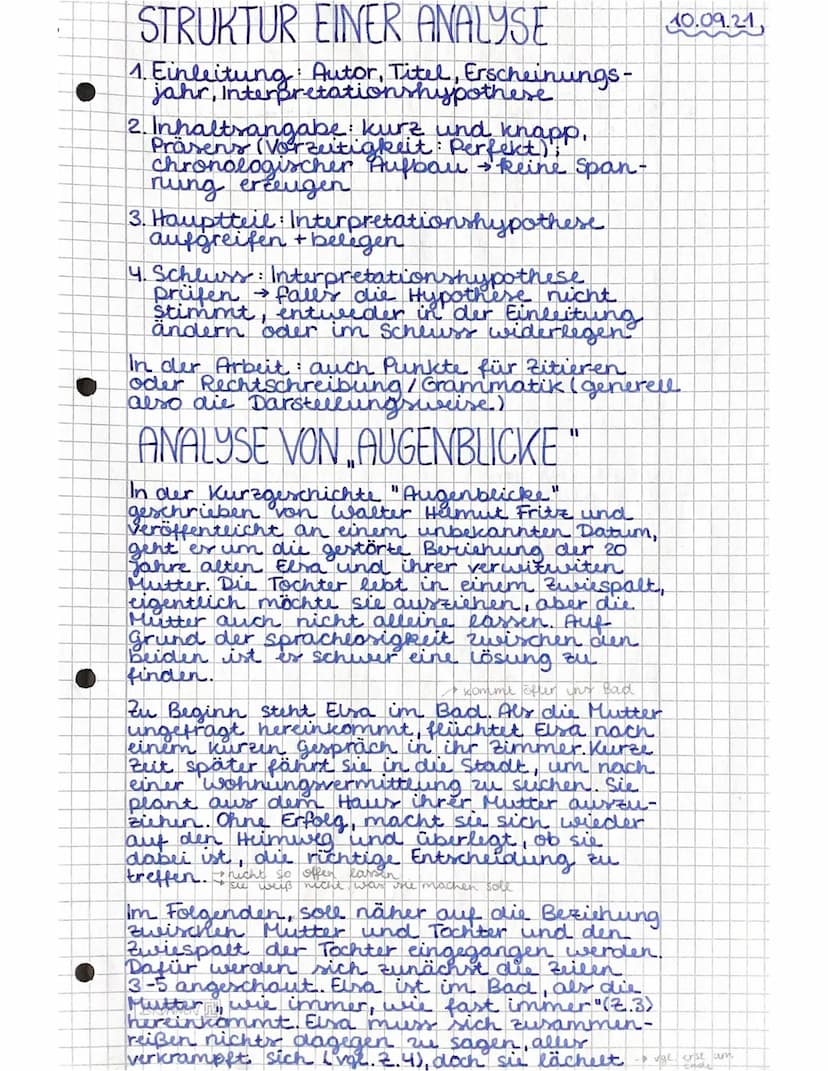 STRUKTUR EINER ANALYSE
10.09.21
1. Einleitung: Autor, Titel, Erscheinungs-
jahr, Interpretationshypothese
2. Inhaltsangabe: kurz und knapp,
Präsens (Vorzeitigkeit: Perfekt);
chronologischer Aufbau → keine Span-
nung erzeugen
3. Hauptteil: Interpretationshypothese
aufgreifen + belegen
4. Schluss: Interpretationshypothese
prüfen → falls die Hypothese nicht
stimmt, entweder in der Einleitung
ändern oder im Schluss widerlegen
In der Arbeit: auch Punkte für Zitieren
oder Rechtschreibung/Grammatik (generell
also die Darstellungsweise)
ANALYSE VON „AUGENBLICKE"
In der Kurzgeschichte "Augenblicke"
geschrieben von Walter Helmut Fritz und
veröffentlicht an einem unbekannten Datum,
geht es um die gestörte Beziehung der 20
Jahre alten Elsa und ihrer verwitwiten
Mutter. Die Tochter lebt in einem Zwiespalt,
eigentlich möchte sie ausziehen, aber die
Mutter auch nicht alleine lassen. Auf-
Grund der Sprachlosigkeit zwischen den
beiden ist es schwer eine Lösung zu
finden.
→ kommt öfter ins Bad
Zu Beginn steht Elsa im Bad. Als die Mutter
ungefragt hereinkommt, flüchtet Elsa nach
einem kurzen Gespräch in ihr Zimmer. Kurze
Zeit später fährt sie in die Stadt, um nach
einer Wohnungsvermittlung zu suchen. Sie
plant aus dem Haus ihrer Mutter auszu-
ziehen. Ohne Erfolg, macht sie sich wieder
auf den Heimweg und überlegt, ob sie
dabei ist, die richtige Entscheidung zu
treffen. → nicht so offen lassen
→ sie weiß nicht, was sie machen soll
Im Folgenden, soll näher auf die Beziehung
zwischen Mutter und Tochter und den
Zwiespalt der Tochter eingegangen werden.
Dafür werden sich zunächst die Zeilen
3-5 angeschaut. Elsa ist im Bad, als die
Mutter „wie immer, wie fast immer" (Z.3)
hereinkommt. Elsa muss sich zusammen-
reißen nichts dagegen zu sagen, alles
verkrampft sich (vgl. Z.4), doch sie lächelt → vgl. erst am
Ende